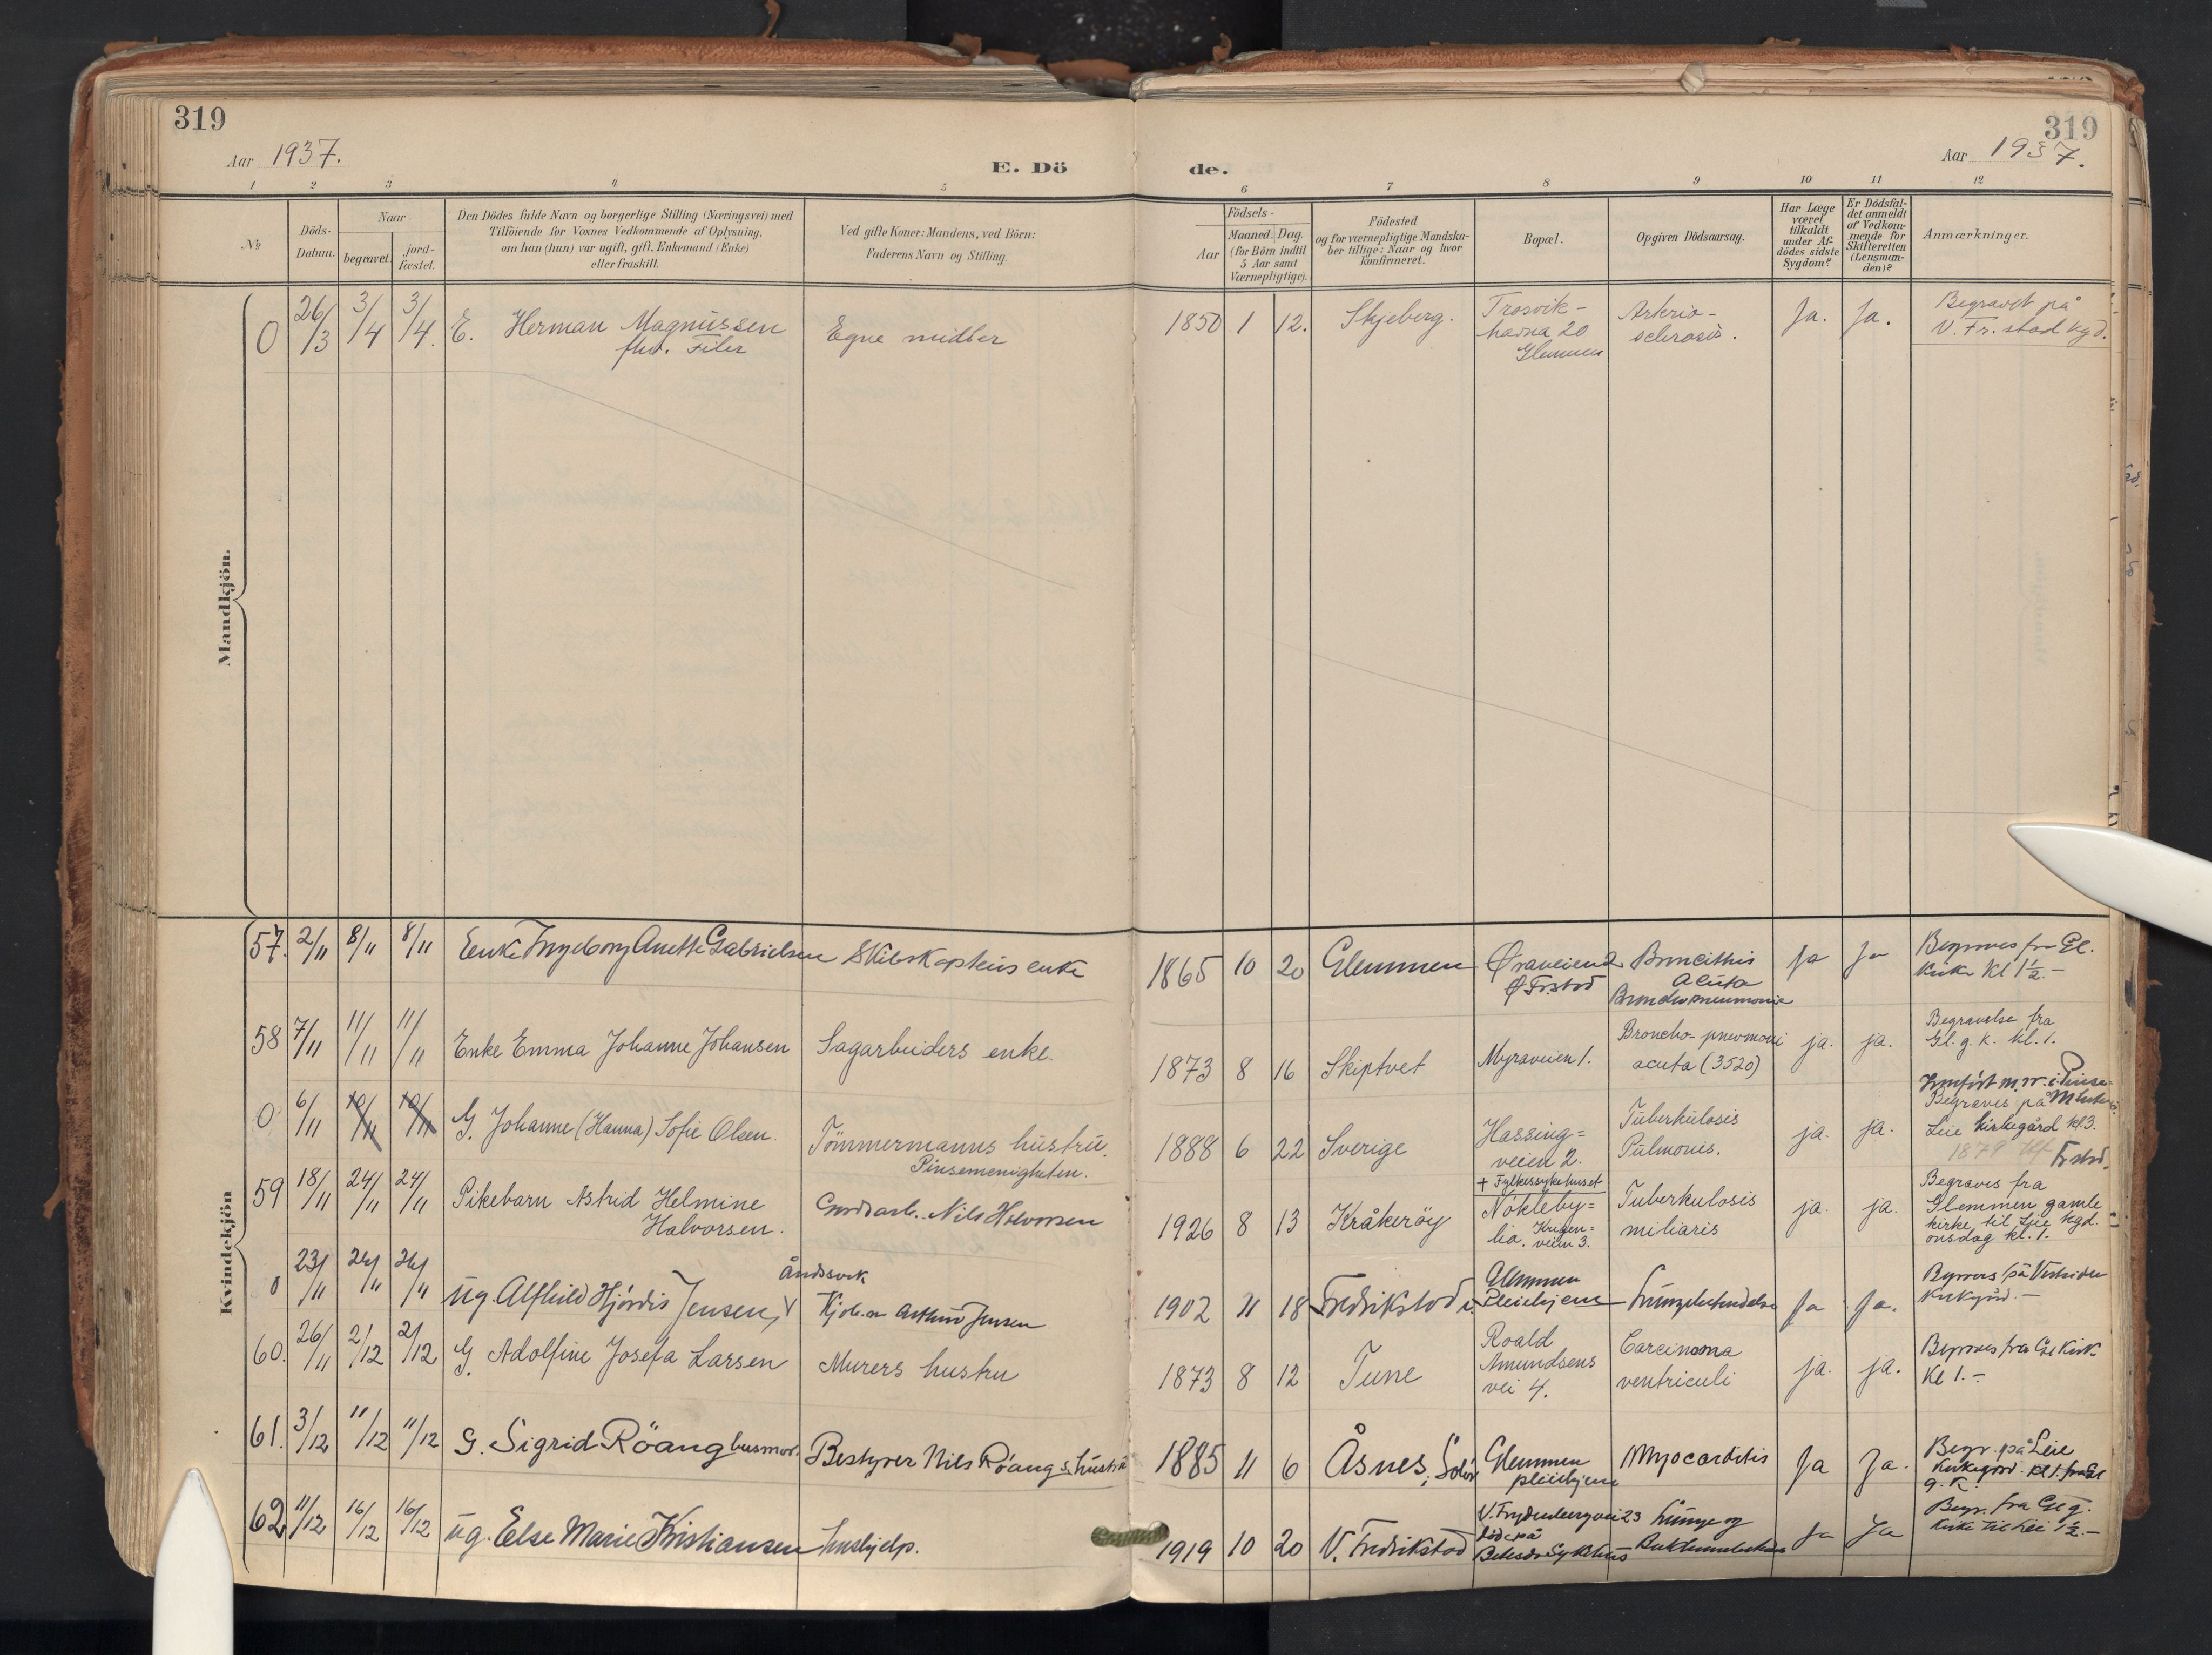 319
319
Aar 1937.
E. Dö
de.
Aar 1937.
1 2 3 4 5 6 7 8 9 10 11 12
No
Döds-
Datum.
Naar
begravet.
jord-
fæstet.
Den Dödes fulde Navn og borgerlige Stilling (Næringsvei) med
Tilföiende for Voxnes Vedkommende af Oplysning,
om han (hun) var ugift, gift, Enkemand (Enke)
eller fraskilt.
Ved gifte Koner: Mandens, ved Börn:
Faderens Navn og Stilling.
Födsels-
Aar
Maaned. Dag
(for Börn indtil
5 Aar samt
Værnepligtige).
Födested
og for værnepligtige Mandska-
ber tillige: Naar og hvor
Konfirmeret.
Bopæl.
Opgiven Dödsaarsag.
Har Læge
været
tilkaldt
under Af-
dödes sidste
Sygdom?
Er Dödsfal-
det anmeldt
af Vedkom-
mende for
Skifteretten
(Lensman-
den)?
Anmærkninger.
Mandkjön.
0 26/3 3/4 3/4. E. Herman Magnussen
fhv. Filer
Egne midler
1850 1 12. Skjeberg.
Trosvik-
havna 20
Glemmen
Arterio-
sclerosis.
Ja. Ja.
Begravet på
V. Fr.stad kgd.
Kvindekjön
57. 2/11 8/11 8/11 Enke Ingeborg Anette Gabrielsen Skibskapteins enke
1865 10 20 Glemmen
Øraveien 2
Ø Fr.stad
Broncithis
Acuta
Bronchopneumonie
Ja Ja
Begraves fra Gl.
Kirke Kl 1½.-
58 7/11 11/11 11/11 Enke Emma Johanne Johansen Sagarbeiders enke.
1873 8 16 Skiptvet Myraveien 1.
Broncho-pneumoni
acuta (3520)
ja. ja.
Begravelse fra
Gl. g. k. kl. 1.
0 6/11 10/11 10/11 G. Johanne (Hanna) Sofie Olsen.
Tömmermanns hustru.
Pinsemenigheten.
1888 6 22 Sverige
Hassing=
veien 2.
Tuberkulosis
Pulmonis.
ja. ja.
Begraves på
Leie kirkegård kl 3.
1879
Fr.stad.
59 18/11 24/11 24/11 Pikebarn Astrid Helmine
Halvorsen.
Nils Halvorsen
1926 8 13 Kråkeröy
+ Fylkessykehuset
Nökleby=
lia.
veien 3.
Tuberkulosis
miliaris
ja. ja.
Begraves fra
Glemmen gamle
kirke til Leie kgd.
onsdag kl. 1.
0 23/11 26/11 26/11 ug. Alfhild Hjördis Jensen, V
Åndssvak
Arthur Jensen
1902 11 18 Fredrikstad
Glemmen
Pleiehjem
Lungebetendelse
Ja Ja.
Begraves på Vestsiden
Kirkegård.-
60. 26/11 2/12 2/12 G. Adolfine Josefa Larsen Murers hustru
1873 8 12 Tune
Roald
Amundsens
vei 4.
Carcinoma
ventriculi
ja. ja.
Begraves fra Gl Kirke
Kl 1.-
61. 3/12 11/12 11/12 G. Sigrid Röang husmor. Bestyrer Nils Röangs hustru
1885 11 6 Åsnes, Solör
Glemmen
pleiehjem
Myocarditis
Ja Ja.
Begr. på Leie
Kirkegård. Kl 1. fra Gl
g. K.
62 11/12 16/12 16/12 ug. Else Marie Kristiansen hushjelp.
1919 10 20 V. Fredrikstad
V. Frydenbergvei 23
död på
Betesda Sykehus
Lunge og
Buktuberkulose
Ja Ja
Begr. fra Gl g.
Kirke til Leie 1½.-